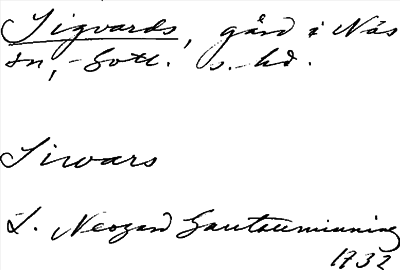 Sigvards, gård i Näs
sn, Gotl. s. hd.
Sirvars
L. Neogard Gautauminning
1732